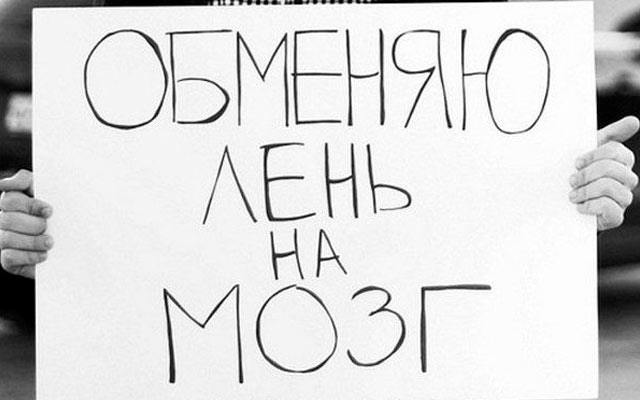 ОБМЕНЯЮ
ЛЕНЬ
НА
МОЗГ